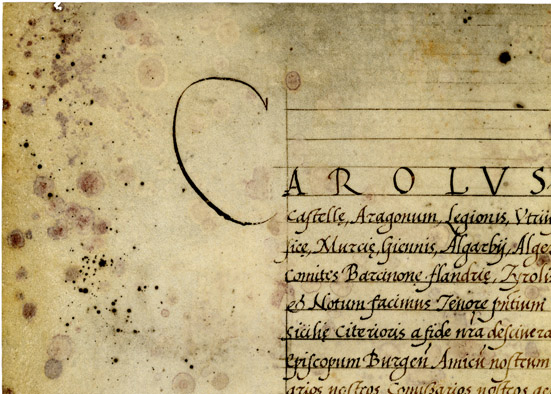 CAROLVS
Castellę, Aragonum, Legionis, Vtriu
sicę, Murcię, Giennis, Algarbij, Alge
Comites Barcinone flandrię, Tyrolis
et Notum facimus Tenore pntium
Sicilię Citerioris a fide nra desciuera
Episcopum Burgen Amicū nostrum
arios nostros Comissarios nostros ac